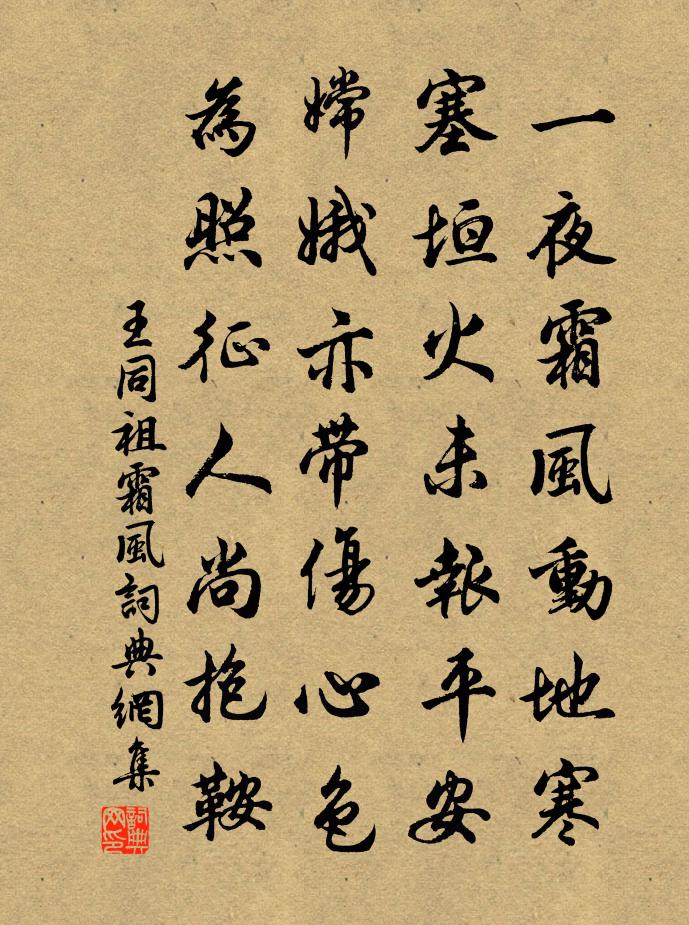 一夜霜風動地寒
塞垣火未報平安
嫦娥亦帶傷心色
為照征人尚抱鞍
王同祖霜風詞典網集
詞典网印